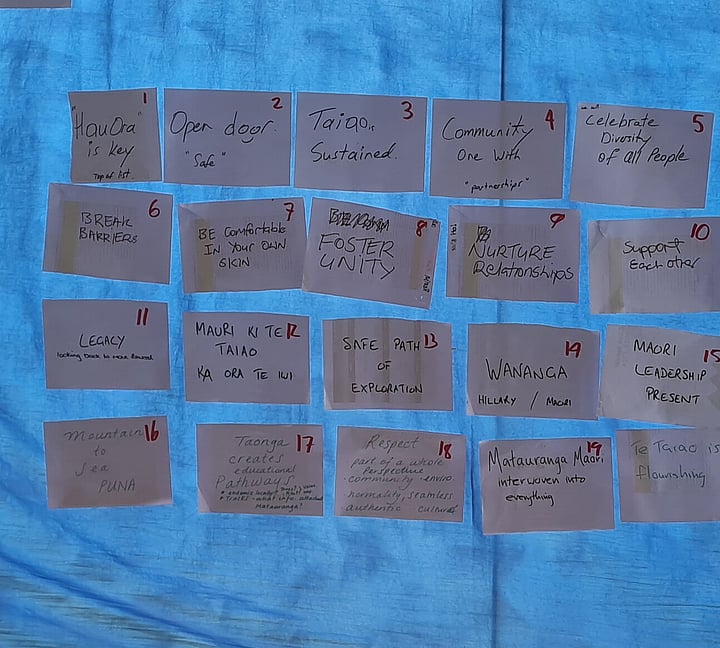 1
"HauOra"
is key
Top of list.
2
Open door.
"Safe"
3
Taiao
Sustained.
4
Community
One With
"partnerships"
5
Celebrate
Diversity
of all People
6
BREAK
BARRIERS
7
BE Comfortable
IN Your OWN
SKIN
8
FOSTER
UNITY
9
NURTURE
Relationships
10
Support
Each other
11
LEGACY
looking back to move forward
12
MAURI KI TE
TAIAO
KA ORA TE IWI
13
SAFE PATH
OF
EXPLORATION
14
WANANGA
HILLARY / MAORI
15
MAORI
LEADERSHIP
PRESENT
16
Mountain
to
Sea
PUNA
17
Taonga
creates
educational
Pathways
Matauranga?
18
Respect
part of a whole
Perspective
community - enviro
normality, seamless
authentic culture
19
Matauranga Maori
interwoven into
everything
Te Taiao is
flourishing